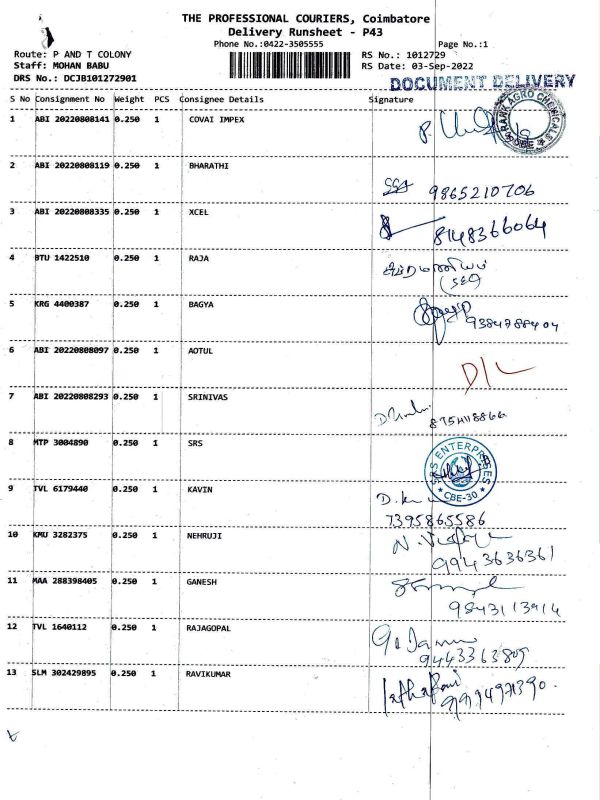 THE PROFESSIONAL COURIERS, Coimbatore
Delivery Runsheet - P43
Phone No.:0422-3505555 Page No.:1
Route: P AND T COLONY RS No.: 1012729
Staff: MOHAN BABU RS Date: 03-Sep-2022
DRS No.: DCJB101272901
DOCUMENT DELIVERY
S No Consignment No Weight PCS Consignee Details Signature
1 ABI 20220808141 0.250 1 COVAI IMPEX
AGRO CHEMICALS CBE
2 ABI 20220808119 0.250 1 BHARATHI
9865210706
3 ABI 20220808335 0.250 1 XCEL
8148366064
4 BTU 1422510 0.250 1 RAJA
5 KRG 4400387 0.250 1 BAGYA
9384788404
6 ABI 20220808097 0.250 1 AOTUL
D/L
7 ABI 20220808293 0.250 1 SRINIVAS
8 MTP 3004890 0.250 1 SRS
SRS ENTERPRISES CBE-30
9 TVL 6179440 0.250 1 KAVIN
7395865586
10 KMU 3282375 0.250 1 NEHRUJI
9943636361
11 MAA 288398405 0.250 1 GANESH
9843113914
12 TVL 1640112 0.250 1 RAJAGOPAL
9443363809
13 SLM 302429895 0.250 1 RAVIKUMAR